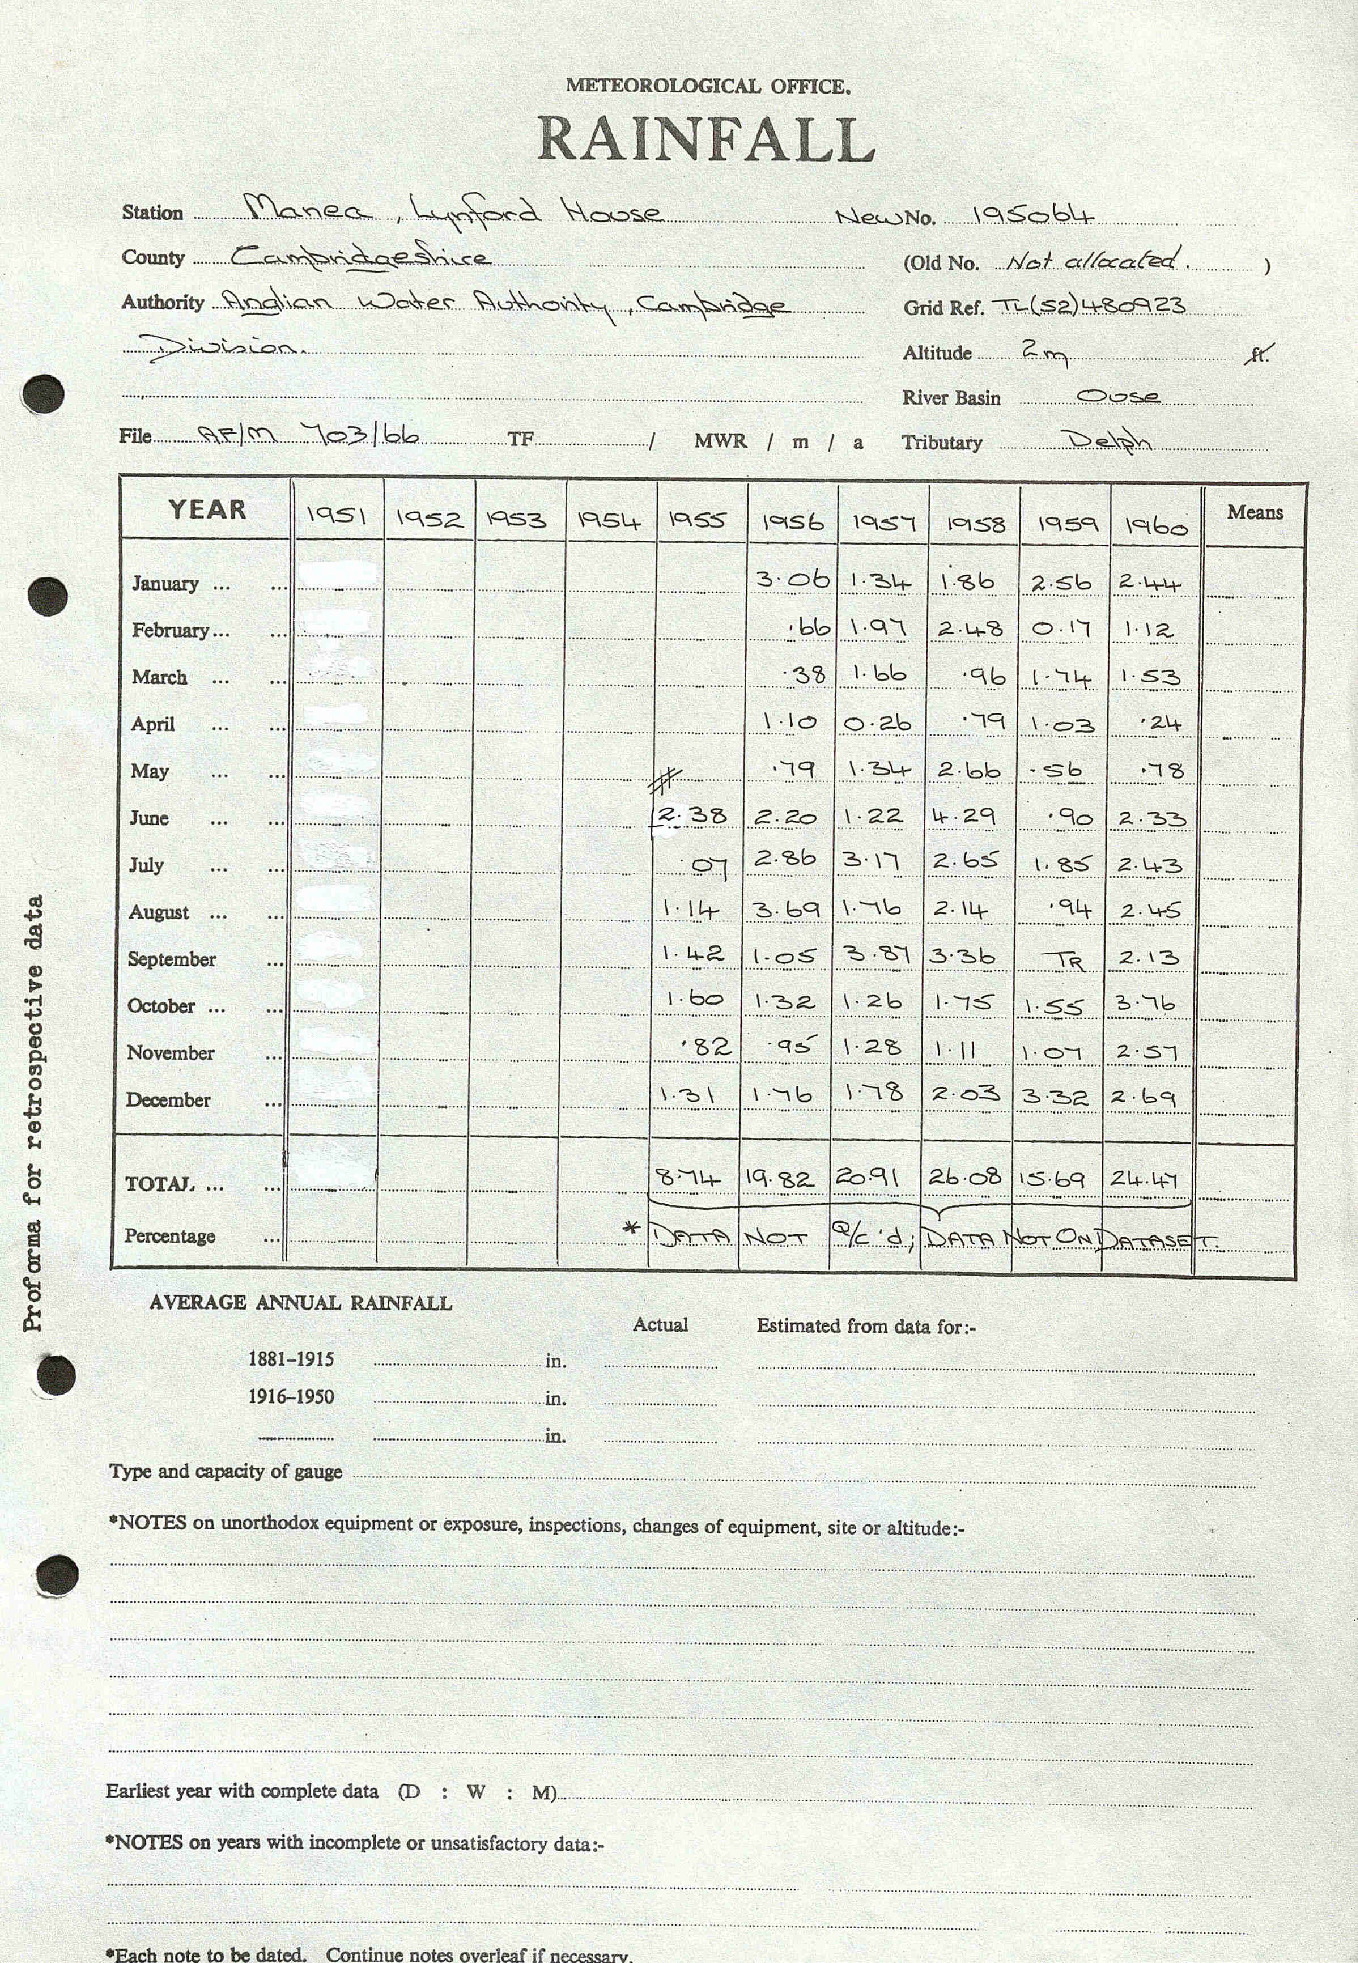 METEOROLOGICAL OFFICE.
RAINFALL
Station Manea, Lynford House New No. 195064
County Cambridgeshire (Old No. Not allocated. )
Authority Anglian Water Authority, Cambridge Grid Ref. TL(52)480923
Division. Altitude 2m ft.
River Basin Ouse
File AF/M 703/66 TF / MWR / m / a Tributary Delph
YEAR 1951 1952 1953 1954 1955 1956 1957 1958 1959 1960 Means
January ... ... 3.06 1.34 1.86 2.56 2.44
February ... ... .66 1.97 2.48 0.17 1.12
March ... ... .38 1.66 .96 1.74 1.53
April ... ... 1.10 0.26 .79 1.03 .24
May ... ... # .79 1.34 2.66 .56 .78
June ... ... 2.38 2.20 1.22 4.29 .90 2.33
July ... ... 07 2.86 3.17 2.65 1.85 2.43
August ... ... 1.14 3.69 1.76 2.14 .94 2.45
September ... 1.42 1.05 3.87 3.36 TR 2.13
October ... ... 1.60 1.32 1.26 1.75 1.55 3.76
November ... .82 .95 1.28 1.11 1.07 2.57
December ... 1.31 1.76 1.78 2.03 3.32 2.69
TOTAL ... ... 8.74 19.82 20.91 26.08 15.69 24.47
Percentage ... * DATA NOT Q/C'd; DATA NOT ON DATASET.
Proforma for retrospective data
AVERAGE ANNUAL RAINFALL
Actual Estimated from data for:-
1881-1915 in.
1916-1950 in.
in.
Type and capacity of gauge
*NOTES on unorthodox equipment or exposure, inspections, changes of equipment, site or altitude:-
Earliest year with complete data (D : W : M)
*NOTES on years with incomplete or unsatisfactory data:-
*Each note to be dated. Continue notes overleaf if necessary.